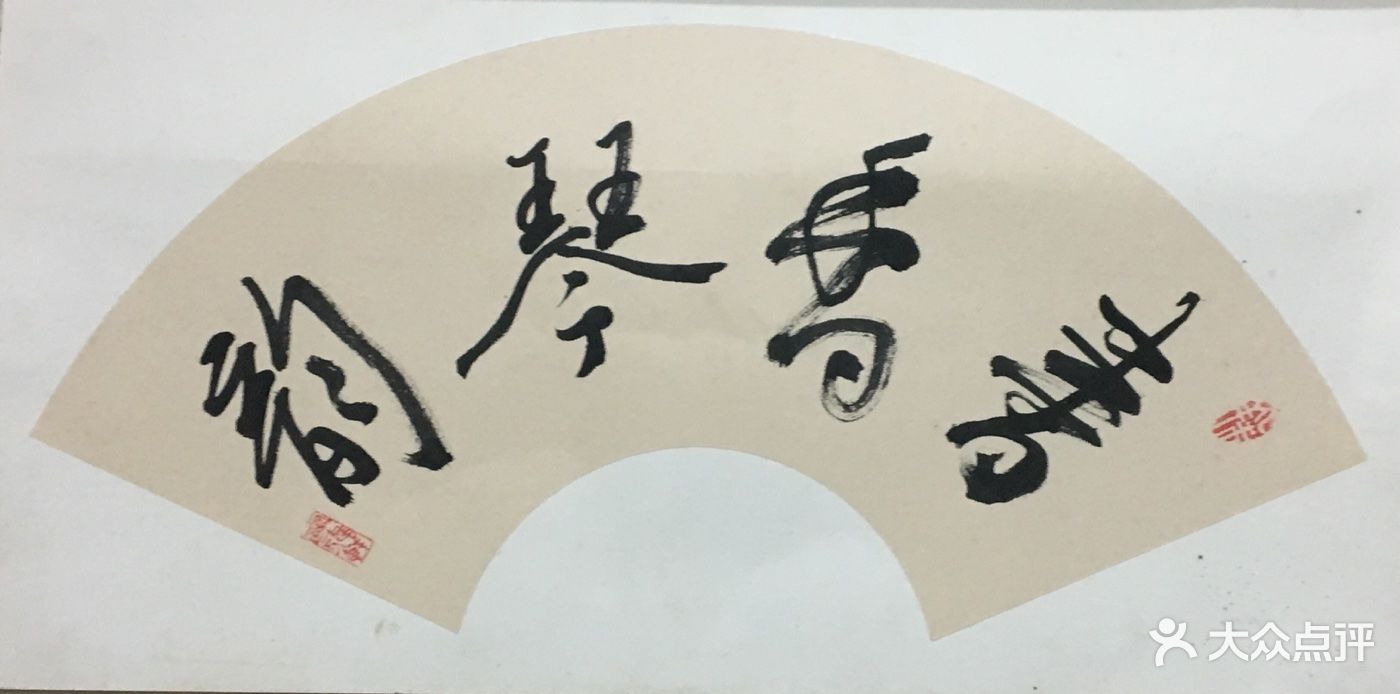 書香琴韵
大众点评